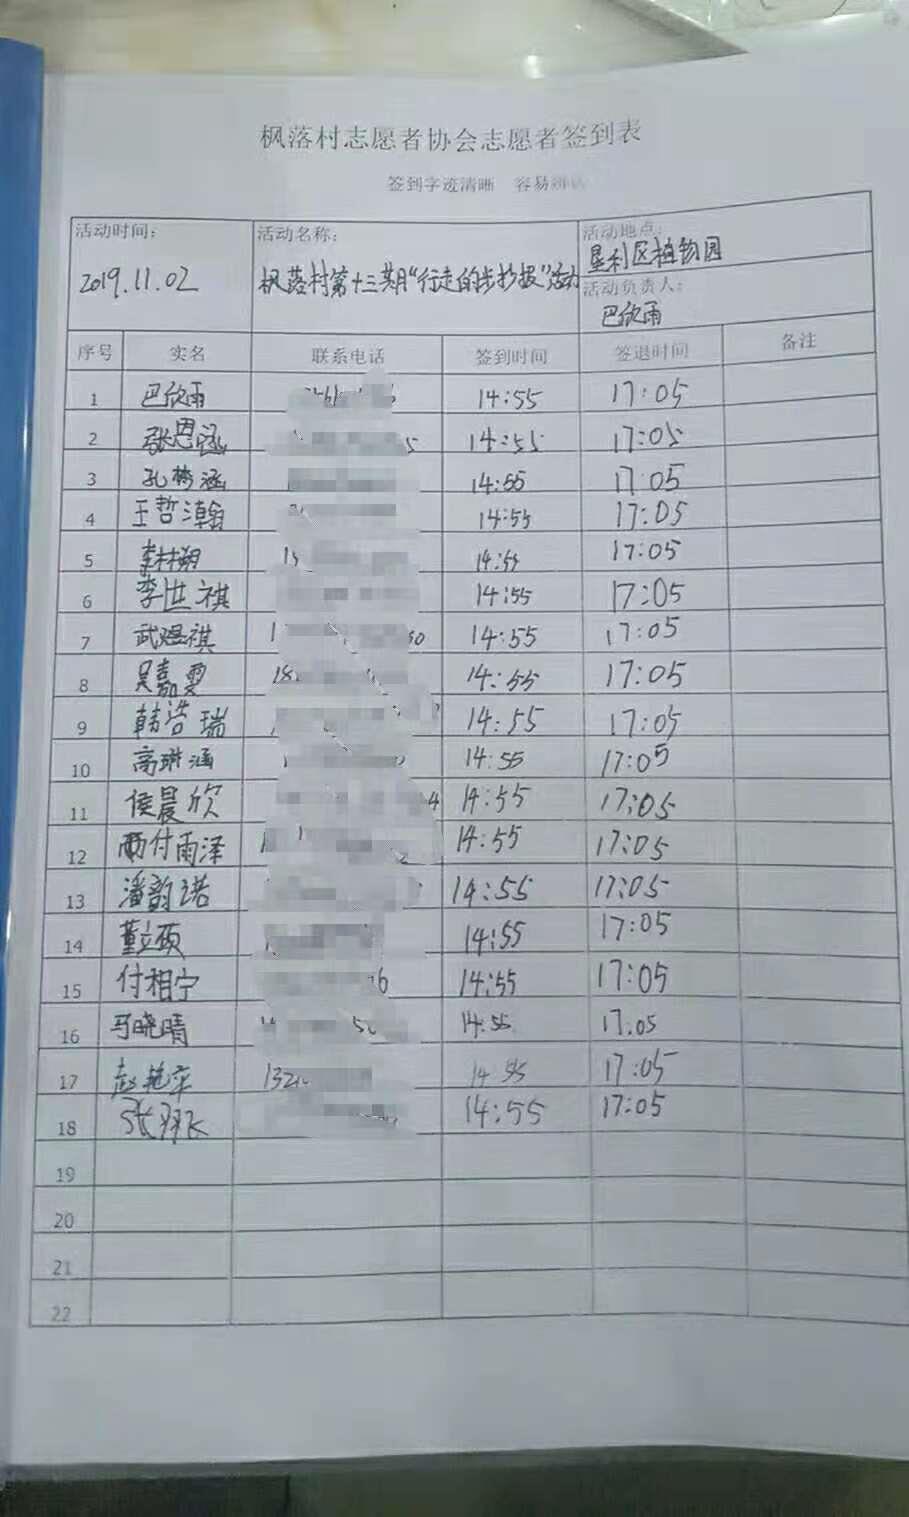 枫落村志愿者协会志愿者签到表
签到字迹清晰 容易辨认
活动时间: 活动名称: 活动地点:
2019.11.02 枫落村第十三期“行走的步抄报”活动 垦利区植物园
活动负责人:
巴欣雨
序号 实名 联系电话 签到时间 签退时间 备注
1 巴欣雨 14:55 17:05
2 张恩涵 14:55 17:05
3 孔梦涵 14:55 17:05
4 王哲瀚 14:55 17:05
5 李林翔 14:55 17:05
6 李世祺 14:55 17:05
7 武煜祺 14:55 17:05
8 吴嘉雯 14:55 17:05
9 韩浩瑞 14:55 17:05
10 高琳涵 14:55 17:05
11 侯晨欣 14:55 17:05
12 付雨泽 14:55 17:05
13 潘韵诺 14:55 17:05
14 董立硕 14:55 17:05
15 付相宁 14:55 17:05
16 马晓晴 14:55 17:05
17 赵艳 14:55 17:05
18 张翔飞 14:55 17:05
19
20
21
22